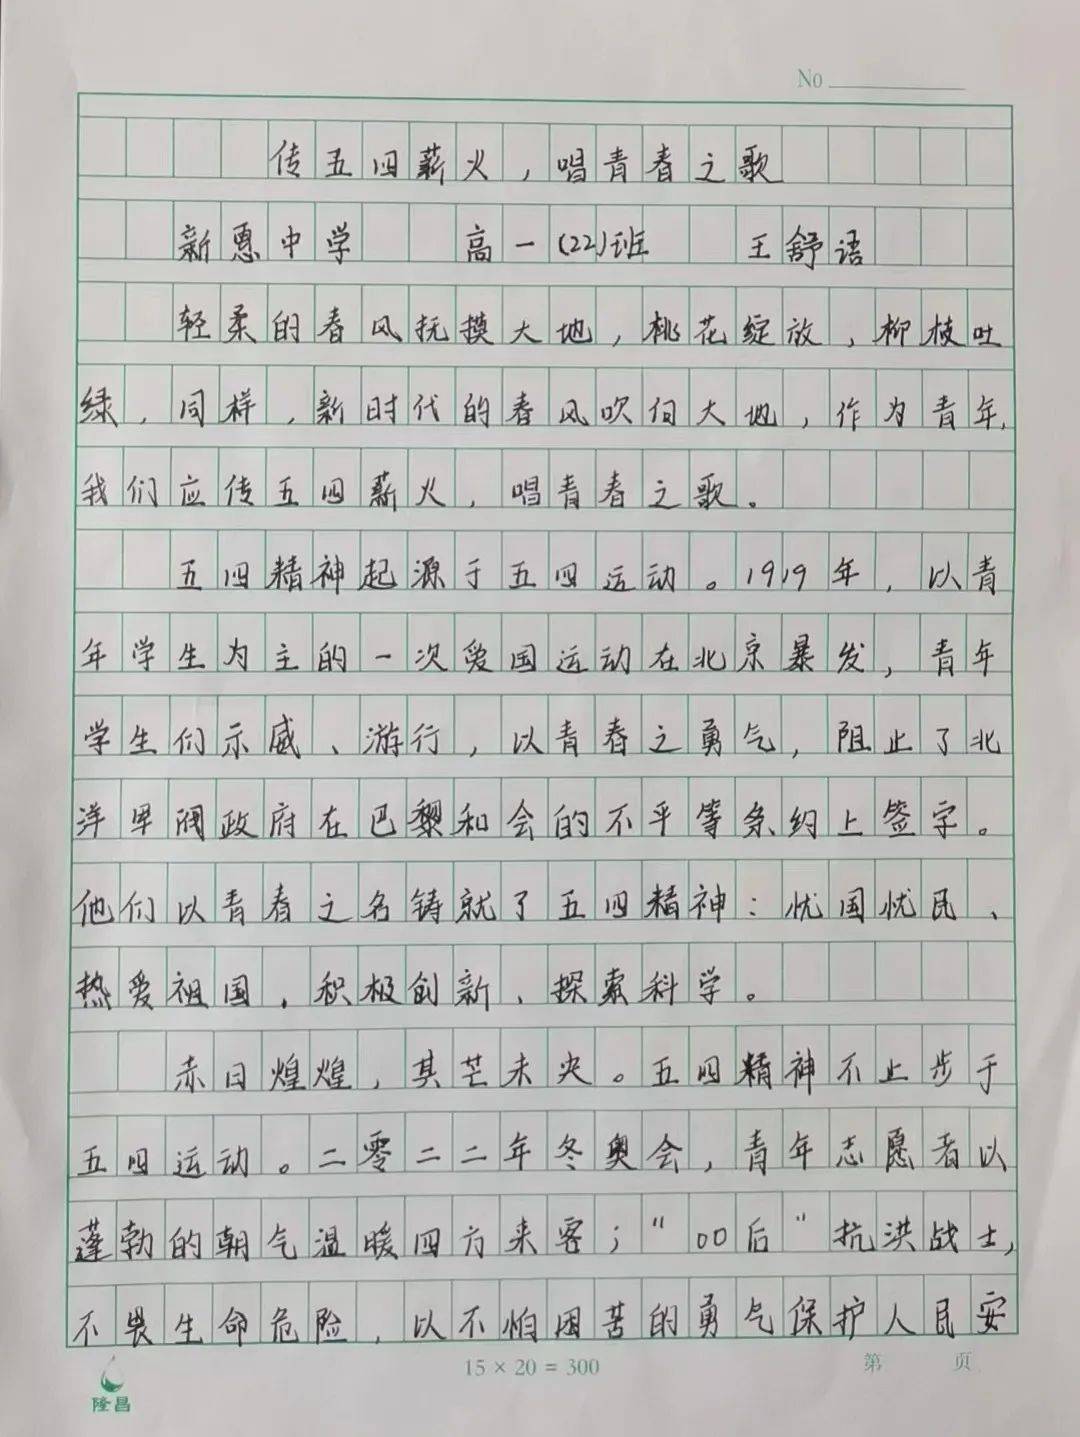 No
传五四薪火，唱青春之歌
新惠中学 高一(22)班 王舒语
轻柔的春风抚摸大地，桃花绽放，柳枝吐
绿，同样，新时代的春风吹向大地，作为青年，
我们应传五四薪火，唱青春之歌。
五四精神起源于五四运动。1919年，以青
年学生为主的一次爱国运动在北京暴发，青年
学生们示威、游行，以青春之勇气，阻止了北
洋军阀政府在巴黎和会的不平等条约上签字。
他们以青春之名铸就了五四精神：忧国忧民、
热爱祖国，积极创新、探索科学。
赤日煌煌，其芒未央。五四精神不止步于
五四运动。二零二二年冬奥会，青年志愿者以
蓬勃的朝气温暖四方来客；“00后”抗洪战士，
不畏生命危险，以不怕困苦的勇气保护人民安
隆昌
15×20=300
第 页